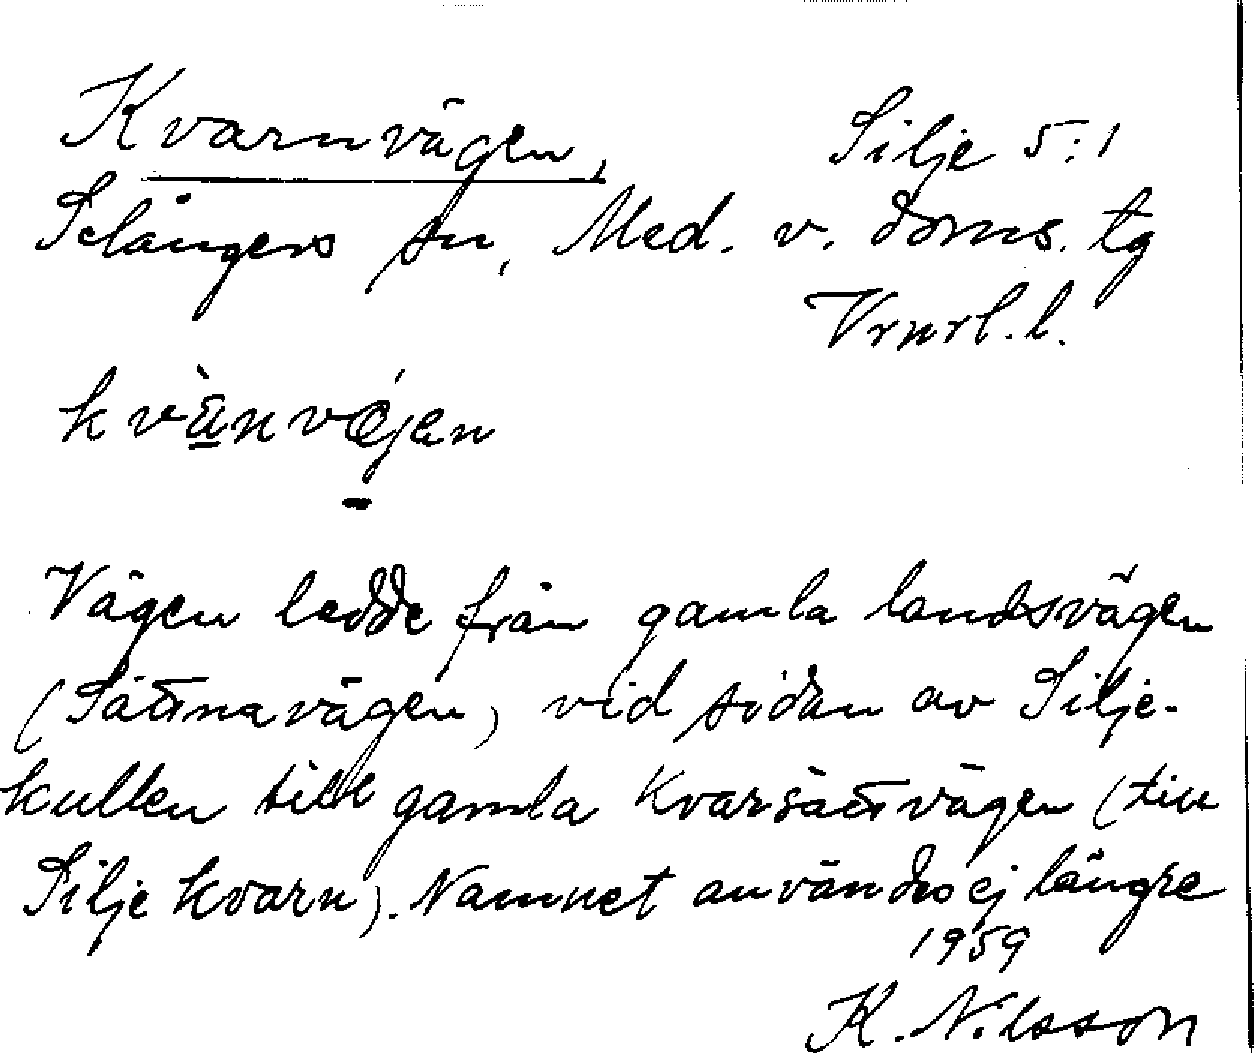 Kvarnvägen, Silje 5:1
Selångers sn, Med. v. doms. tg
Vrnrl. l.
kvä̀nvǿjen
Vägen ledde från gamla landsvägen
(Sättnavägen) vid sidan av Silje-
kullen till gamla Kvarsättvägen (till
Silje kvarn). Namnet användes ej längre
1959
K. Nilsson